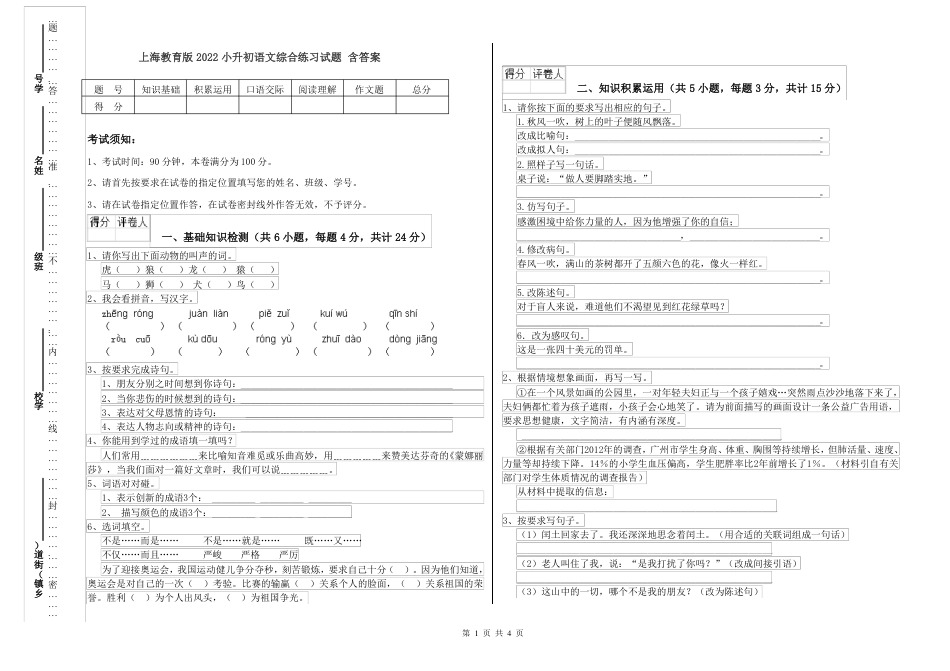 上海教育版 2022 小升初语文综合练习试题 含答案
题 号 知识基础 积累运用 口语交际 阅读理解 作文题 总分
得 分
考试须知：
1、考试时间：90 分钟，本卷满分为 100 分。
2、请首先按要求在试卷的指定位置填写您的姓名、班级、学号。
3、请在试卷指定位置作答，在试卷密封线外作答无效，不予评分。
得分 评卷人
一、基础知识检测（共 6 小题，每题 4 分，共计 24 分）
1、请你写出下面动物的叫声的词。
虎（ ）狼（ ）龙（ ） 猿（ ）
马（ ）狮（ ） 犬（ ）鸟（ ）
2、我会看拼音，写汉字。
zhēng róng juàn liàn piě zuǐ kuí wú qīn shí
（ ） （ ） （ ） （ ） （ ）
kù dōu róng yù zhuī dào dòng jiāng
（ ） （ ） （ ） （ ） （ ）
3、按要求完成诗句。
1、朋友分别之时间想到你诗句：
2、当你悲伤的时候想到的诗句：
3、表达对父母恩情的诗句：
4、表达人物志向或精神的诗句：
4、你能用到学过的成语填一填吗？
人们常用﹎﹎﹎﹎﹎﹎来比喻知音难觅或乐曲高妙，用﹎﹎﹎﹎﹎来赞美达芬奇的《蒙娜丽
莎》，当我们面对一篇好文章时，我们可以说﹎﹎﹎﹎﹎。
5、词语对对碰。
1、表示创新的成语3个：
2、 描写颜色的成语3个：
6、选词填空。
不是……而是…… 不是……就是…… 既……又……
不仅……而且…… 严峻 严格 严厉
为了迎接奥运会，我国运动健儿争分夺秒，刻苦锻炼，要求自己十分（ ）。因为他们知道，
奥运会是对自己的一次（ ）考验。比赛的输赢（ ）关系个人的脸面，（ ）关系祖国的荣
誉。胜利（ ）为个人出风头，（ ）为祖国争光。
得分 评卷人
二、知识积累运用（共 5 小题，每题 3 分，共计 15 分）
1、请你按下面的要求写出相应的句子。
1.秋风一吹，树上的叶子便随风飘落。
改成比喻句：＿＿＿。
改成拟人句：＿＿＿。
2.照样子写一句话。
桌子说：“做人要脚踏实地。”
。
3.仿写句子。
感激困境中给你力量的人，因为他增强了你的自信；
， 。
4.修改病句。
春风一吹，满山的茶树都开了五颜六色的花，像火一样红。
。
5.改陈述句。
对于盲人来说，难道他们不渴望见到红花绿草吗？
。
6．改为感叹句。
这是一张四十美元的罚单。
。
2、根据情境想象画面，再写一写。
①在一个风景如画的公园里，一对年轻夫妇正与一个孩子嬉戏…突然雨点沙沙地落下来了，
夫妇俩都忙着为孩子遮雨，小孩子会心地笑了。请为前面描写的画面设计一条公益广告用语，
要求思想健康，文字简洁，有内涵有深度。
②根据有关部门2012年的调查，广州市学生身高、体重、胸围等持续增长，但肺活量、速度、
力量等却持续下降。14％的小学生血压偏高，学生肥胖率比2年前增长了1％。（材料引自有关
部门对学生体质情况的调查报告）
从材料中提取的信息：
3、按要求写句子。
（1）闰土回家去了。我还深深地思念着闰土。（用合适的关联词组成一句话）
（2）老人叫住了我，说：“是我打扰了你吗？”（改成间接引语）
（3）这山中的一切，哪个不是我的朋友？（改为陈述句）
第 1 页 共 4 页
学号
姓名
班级
学校
乡镇（街道）
…题……答……准……不……内……线……封……密…